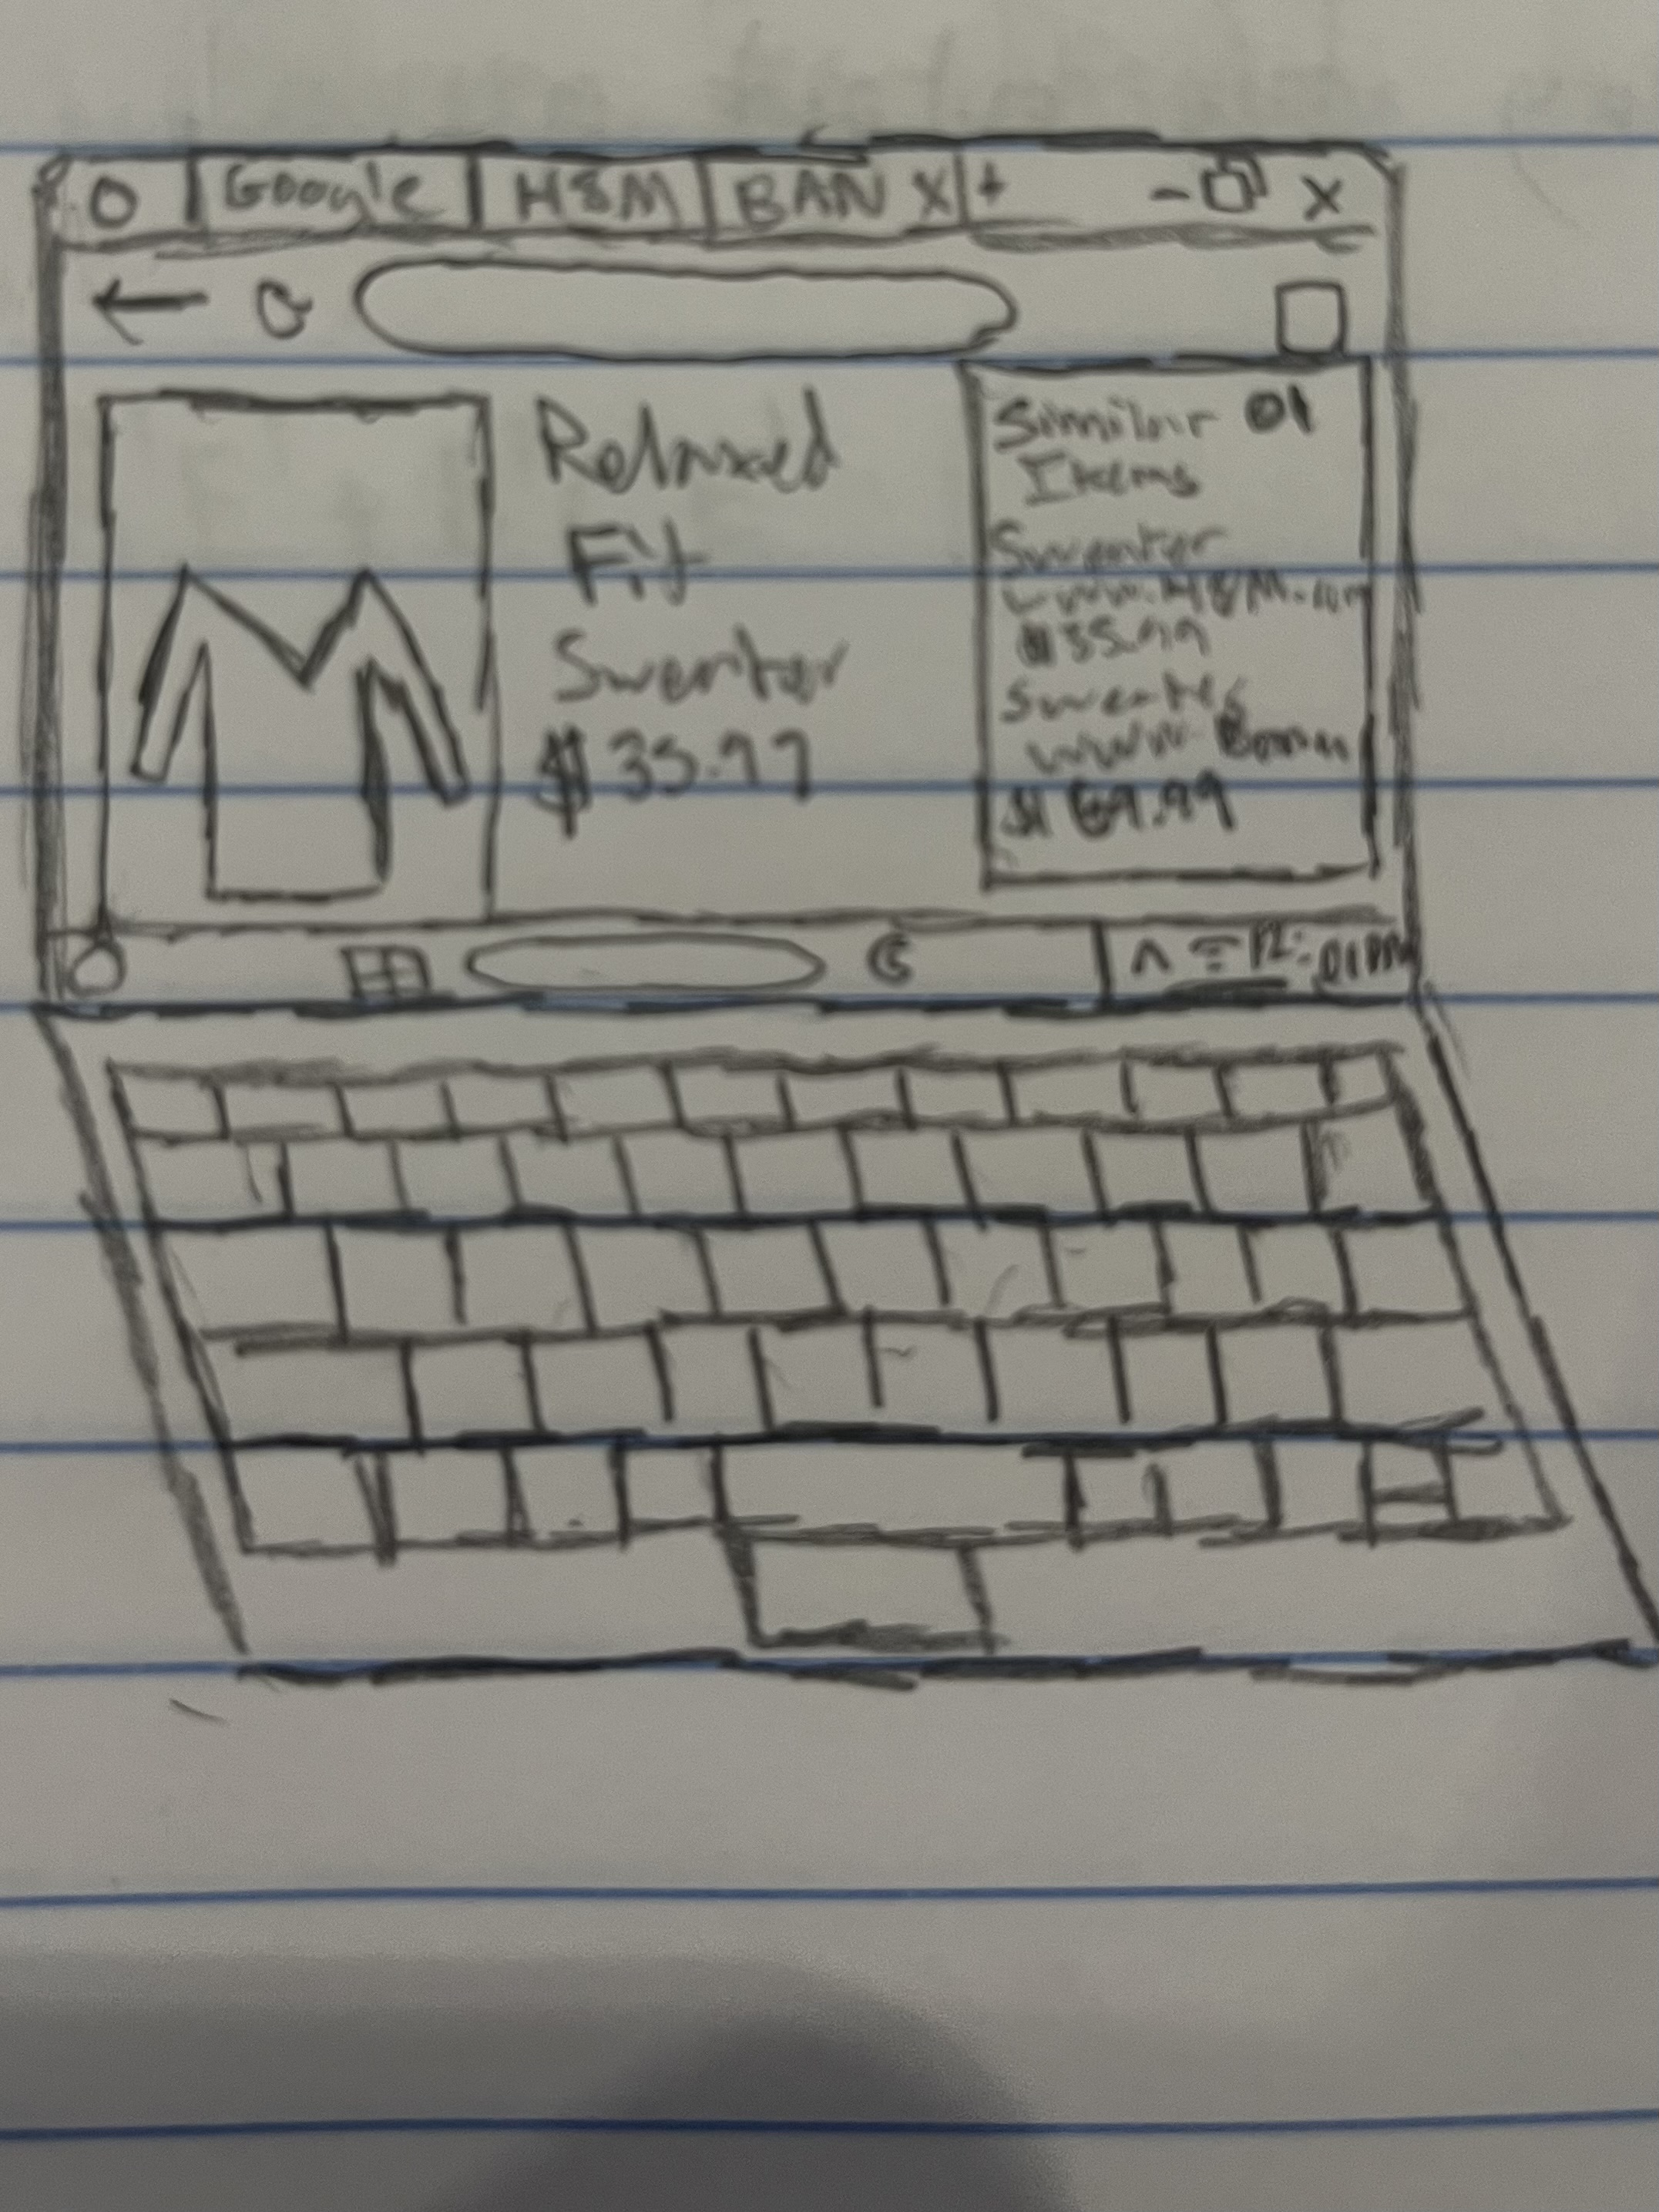 Google H&M BAN X +
- X
Relaxed
Fit
Sweater
$35.99
Similar
Items
Sweater
www.H&M.com
$35.99
Sweater
www.
$69.99
12:01PM